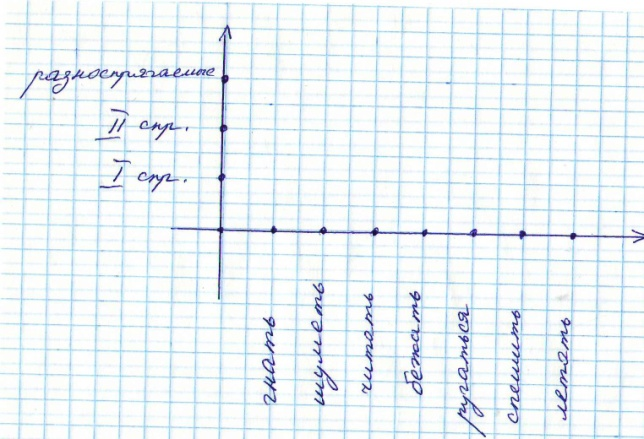 разноспрягаемые
II спр.
I спр.
гнать
шуметь
читать
бежать
ругаться
спешить
летать